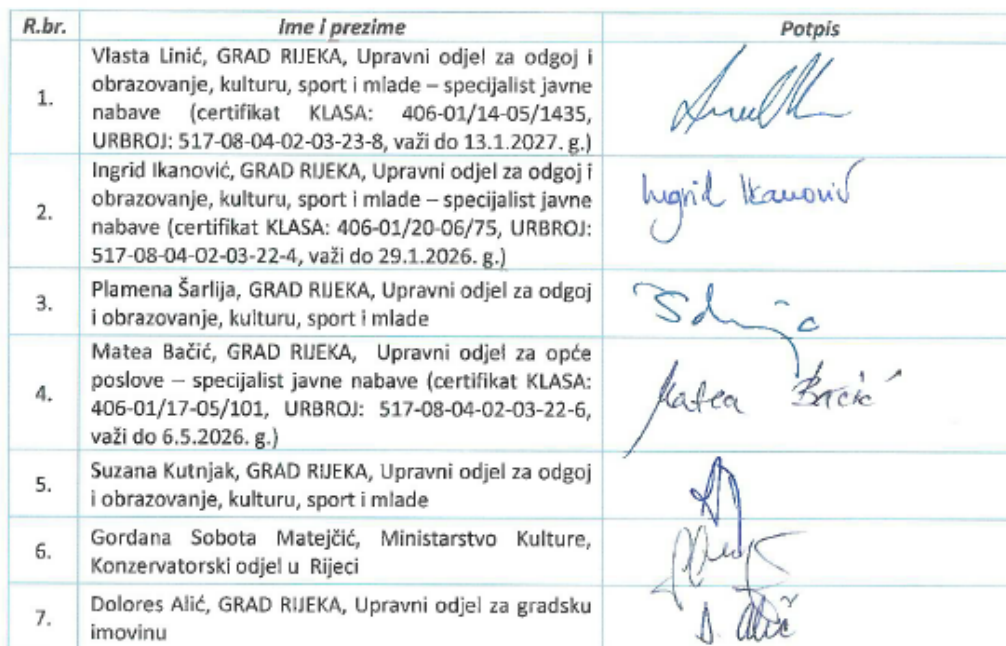 R.br. Ime i prezime Potpis
Vlasta Linić, GRAD RIJEKA, Upravni odjel za odgoj i
obrazovanje, kulturu, sport i mlade – specijalist javne
1. nabave (certifikat KLASA: 406-01/14-05/1435,
URBROJ: 517-08-04-02-03-23-8, važi do 13.1.2027. g.)
Ingrid Ikanović, GRAD RIJEKA, Upravni odjel za odgoj i
obrazovanje, kulturu, sport i mlade – specijalist javne Ingrid Ikanović
2. nabave (certifikat KLASA: 406-01/20-06/75, URBROJ:
517-08-04-02-03-22-4, važi do 29.1.2026. g.)
Plamena Šarlija, GRAD RIJEKA, Upravni odjel za odgoj
3. i obrazovanje, kulturu, sport i mlade
Matea Bačić, GRAD RIJEKA, Upravni odjel za opće
poslove – specijalist javne nabave (certifikat KLASA:
4. 406-01/17-05/101, URBROJ: 517-08-04-02-03-22-6, Matea Bačić
važi do 6.5.2026. g.)
Suzana Kutnjak, GRAD RIJEKA, Upravni odjel za odgoj
5. i obrazovanje, kulturu, sport i mlade
Gordana Sobota Matejčić, Ministarstvo Kulture,
6. Konzervatorski odjel u Rijeci
Dolores Alić, GRAD RIJEKA, Upravni odjel za gradsku
7. imovinu D. Alić